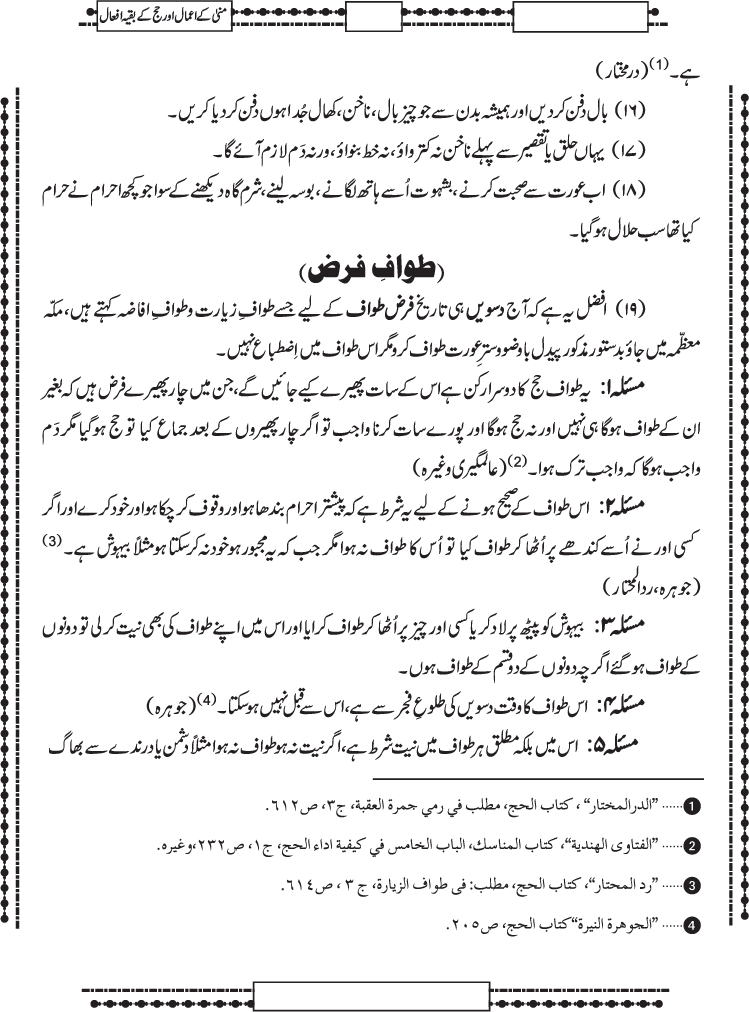 منیٰ کے اعمال اور حج کے بقیہ افعال
ہے۔ (1) (درمختار)
(۱۶) بال دفن کر دیں اور ہمیشہ بدن سے جو چیز بال، ناخن، کھال جُدا ہوں دفن کر دیا کریں۔
(۱۷) یہاں حلق یا تقصیر سے پہلے ناخن نہ کترواؤ، نہ خط بنواؤ، ورنہ دَم لازم آئے گا۔
(۱۸) اب عورت سے صحبت کرنے، بشہوت اُسے ہاتھ لگانے، بوسہ لینے، شرم گاہ دیکھنے کے سوا جو کچھ احرام نے حرام
کیا تھا سب حلال ہوگیا۔
(طوافِ فرض)
(۱۹) افضل یہ ہے کہ آج دسویں ہی تاریخ فرض طواف کے لیے جسے طوافِ زیارت و طوافِ افاضہ کہتے ہیں، مکہّ
معظّمہ میں جاؤ بدستور مذکور پیدل باوضو و سترِ عورت طواف کرو مگر اس طواف میں اِضطباع نہیں۔
مسئلہ۱: یہ طواف حج کا دوسرا رکن ہے اس کے سات پھیرے کیے جائیں گے، جن میں چار پھیرے فرض ہیں کہ بغیر
ان کے طواف ہوگا ہی نہیں اور نہ حج ہوگا اور پورے سات کرنا واجب تو اگر چار پھیروں کے بعد جماع کیا تو حج ہوگیا مگر دَم
واجب ہوگا کہ واجب ترک ہوا۔ (2) (عالمگیری وغیرہ)
مسئلہ۲: اس طواف کے صحیح ہونے کے لیے یہ شرط ہے کہ پیشتر احرام بندھا ہو اور وقوف کر چکا ہو اور خود کرے اور اگر
کسی اور نے اُسے کندھے پر اُٹھا کر طواف کیا تو اُس کا طواف نہ ہوا مگر جب کہ یہ مجبور ہو خود نہ کرسکتا ہو مثلاً بیہوش ہے۔ (3)
(جوہرہ، ردالمحتار)
مسئلہ۳: بیہوش کو پیٹھ پر لاد کر یا کسی اور چیز پر اُٹھا کر طواف کرایا اور اس میں اپنے طواف کی بھی نیت کر لی تو دونوں
کے طواف ہوگئے اگرچہ دونوں کے دو قسم کے طواف ہوں۔
مسئلہ۴: اس طواف کا وقت دسویں کی طلوعِ فجر سے ہے، اس سے قبل نہیں ہوسکتا۔ (4) (جوہرہ)
مسئلہ۵: اس میں بلکہ مطلق ہر طواف میں نیت شرط ہے، اگر نیت نہ ہو طواف نہ ہوا مثلاً دشمن یا درندے سے بھاگ
1...... "الدرالمختار"، كتاب الحج، مطلب في رمي جمرة العقبة، ج۳، ص٦١٢.
2...... "الفتاوى الهندية"، كتاب المناسك، الباب الخامس في كيفية اداء الحج، ج۱، ص٢٣٢،وغيره.
3...... "رد المحتار"، كتاب الحج، مطلب: فى طواف الزيارة، ج ٣ ، ص٦١٤.
4...... "الجوهرة النيرة"كتاب الحج، ص٢٠٥.